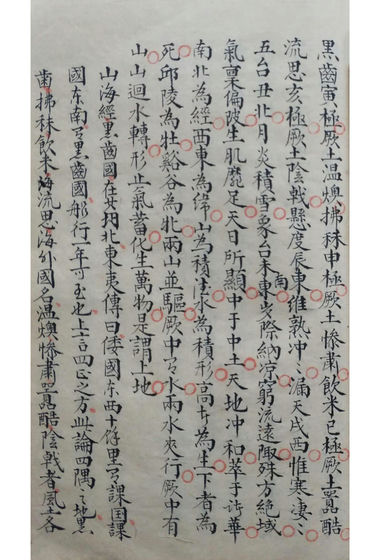 黑齒寅極厥土溫燠拂秣申極厥土慘肅飲米巳極厥土囂酷
流思亥極厥土陰戟懸度辰東維孰冲〻漏天戌西惟寒凄〻
五台丑北月炎積雪象台未東南際納凉窮流遠陬殊方絕域
氣稟偏陂生肌靡足天日所顯中于中土天地冲和萃于華
南北為經西東為緯山為積水為積形高者為生下者為
死邱陵為牡谿谷為牝兩山並驅厥中有水兩水夾行厥中有
山山迴水轉形止氣蓄化生萬物是謂上地
山海經黑齒國在其北東夷傳曰倭國東西十餘里有課國課
國東南有黑齒國船行一年可至也上言四正之方此論四隅之地黑
齒拂秣飲米海流思海外國名溫燠慘肅囂酷陰戟者風土各